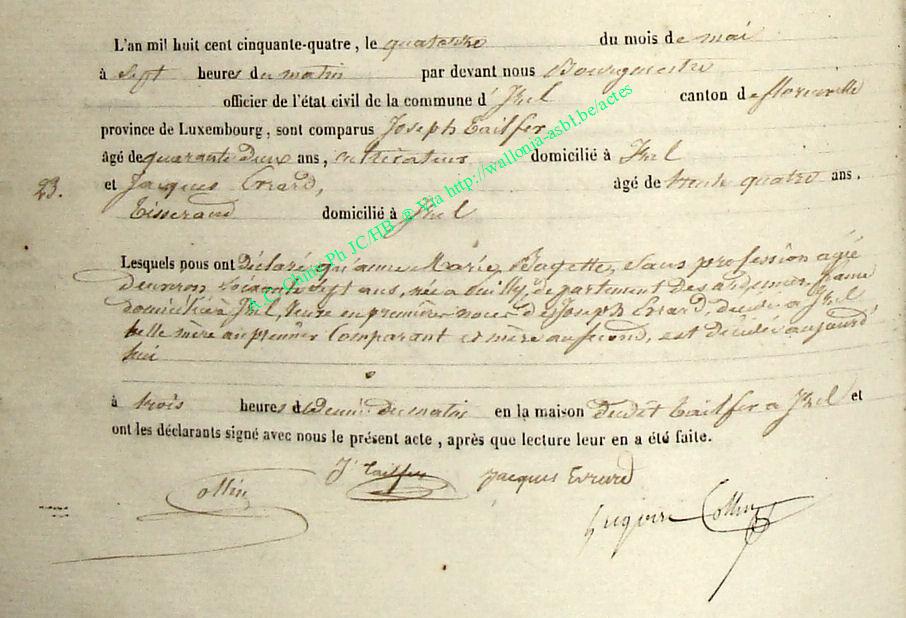 L'an mil huit cent cinquante-quatre, le quatorze du mois de mai
à sept heures du matin par devant nous Bourgmestre
officier de l'état civil de la commune d'Izel canton de florenville
province de Luxembourg, sont comparus Joseph Tailfer
âgé de quarante deux ans, cultivateur domicilié à Izel
23. et Jacques Evrard, âgé de trente quatre ans,
tisserand domicilié à Izel
Lesquels nous ont Déclaré qu'anne Marie Bagette, sans profession agée
d'environ soixante sept ans, née a Puilly, département des ardennes, france
domiciliée à Izel, Veuve en première noces de Joseph Evrard, décédé a Izel
belle mère au premier Comparant et mère au second, est décédée aujourd'
hui
à trois heures et Demi du matin en la maison dudit Tailfer a Izel et
ont les déclarants signé avec nous le présent acte, après que lecture leur en a été faite.
Collin J Tailfer Jacques Evrard
Collin
A.C. Chiny Ph JC/HB © Via http://wallonia-asbl.be/actes